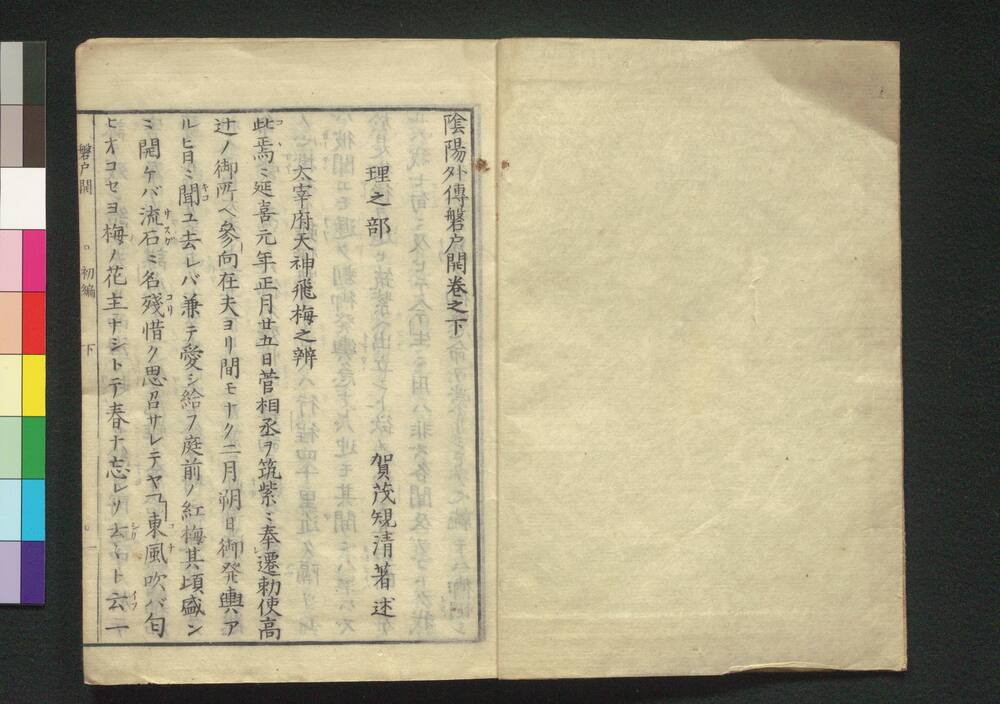 陰陽外傳磐戸開卷之下
理之部
賀茂規清著述
太宰府天神飛梅之辨
此焉ニ延喜元年正月廿五日菅相丞ヲ筑紫ニ奉遷勅使高
辻ノ御所ヘ參向在夫ヨリ間モナク二月朔日御発輿ア
ルヒ旨ニ聞ユ去レバ兼テ愛シ給フ庭前ノ紅梅其頃盛ン
ニ開ケバ流石ニ名殘惜ク思召サレテヤ「東風吹バ匂
ヒオコセヨ梅ノ花主ナシトテ春ナ忘レソ去シト云
磐戸開
初編
下